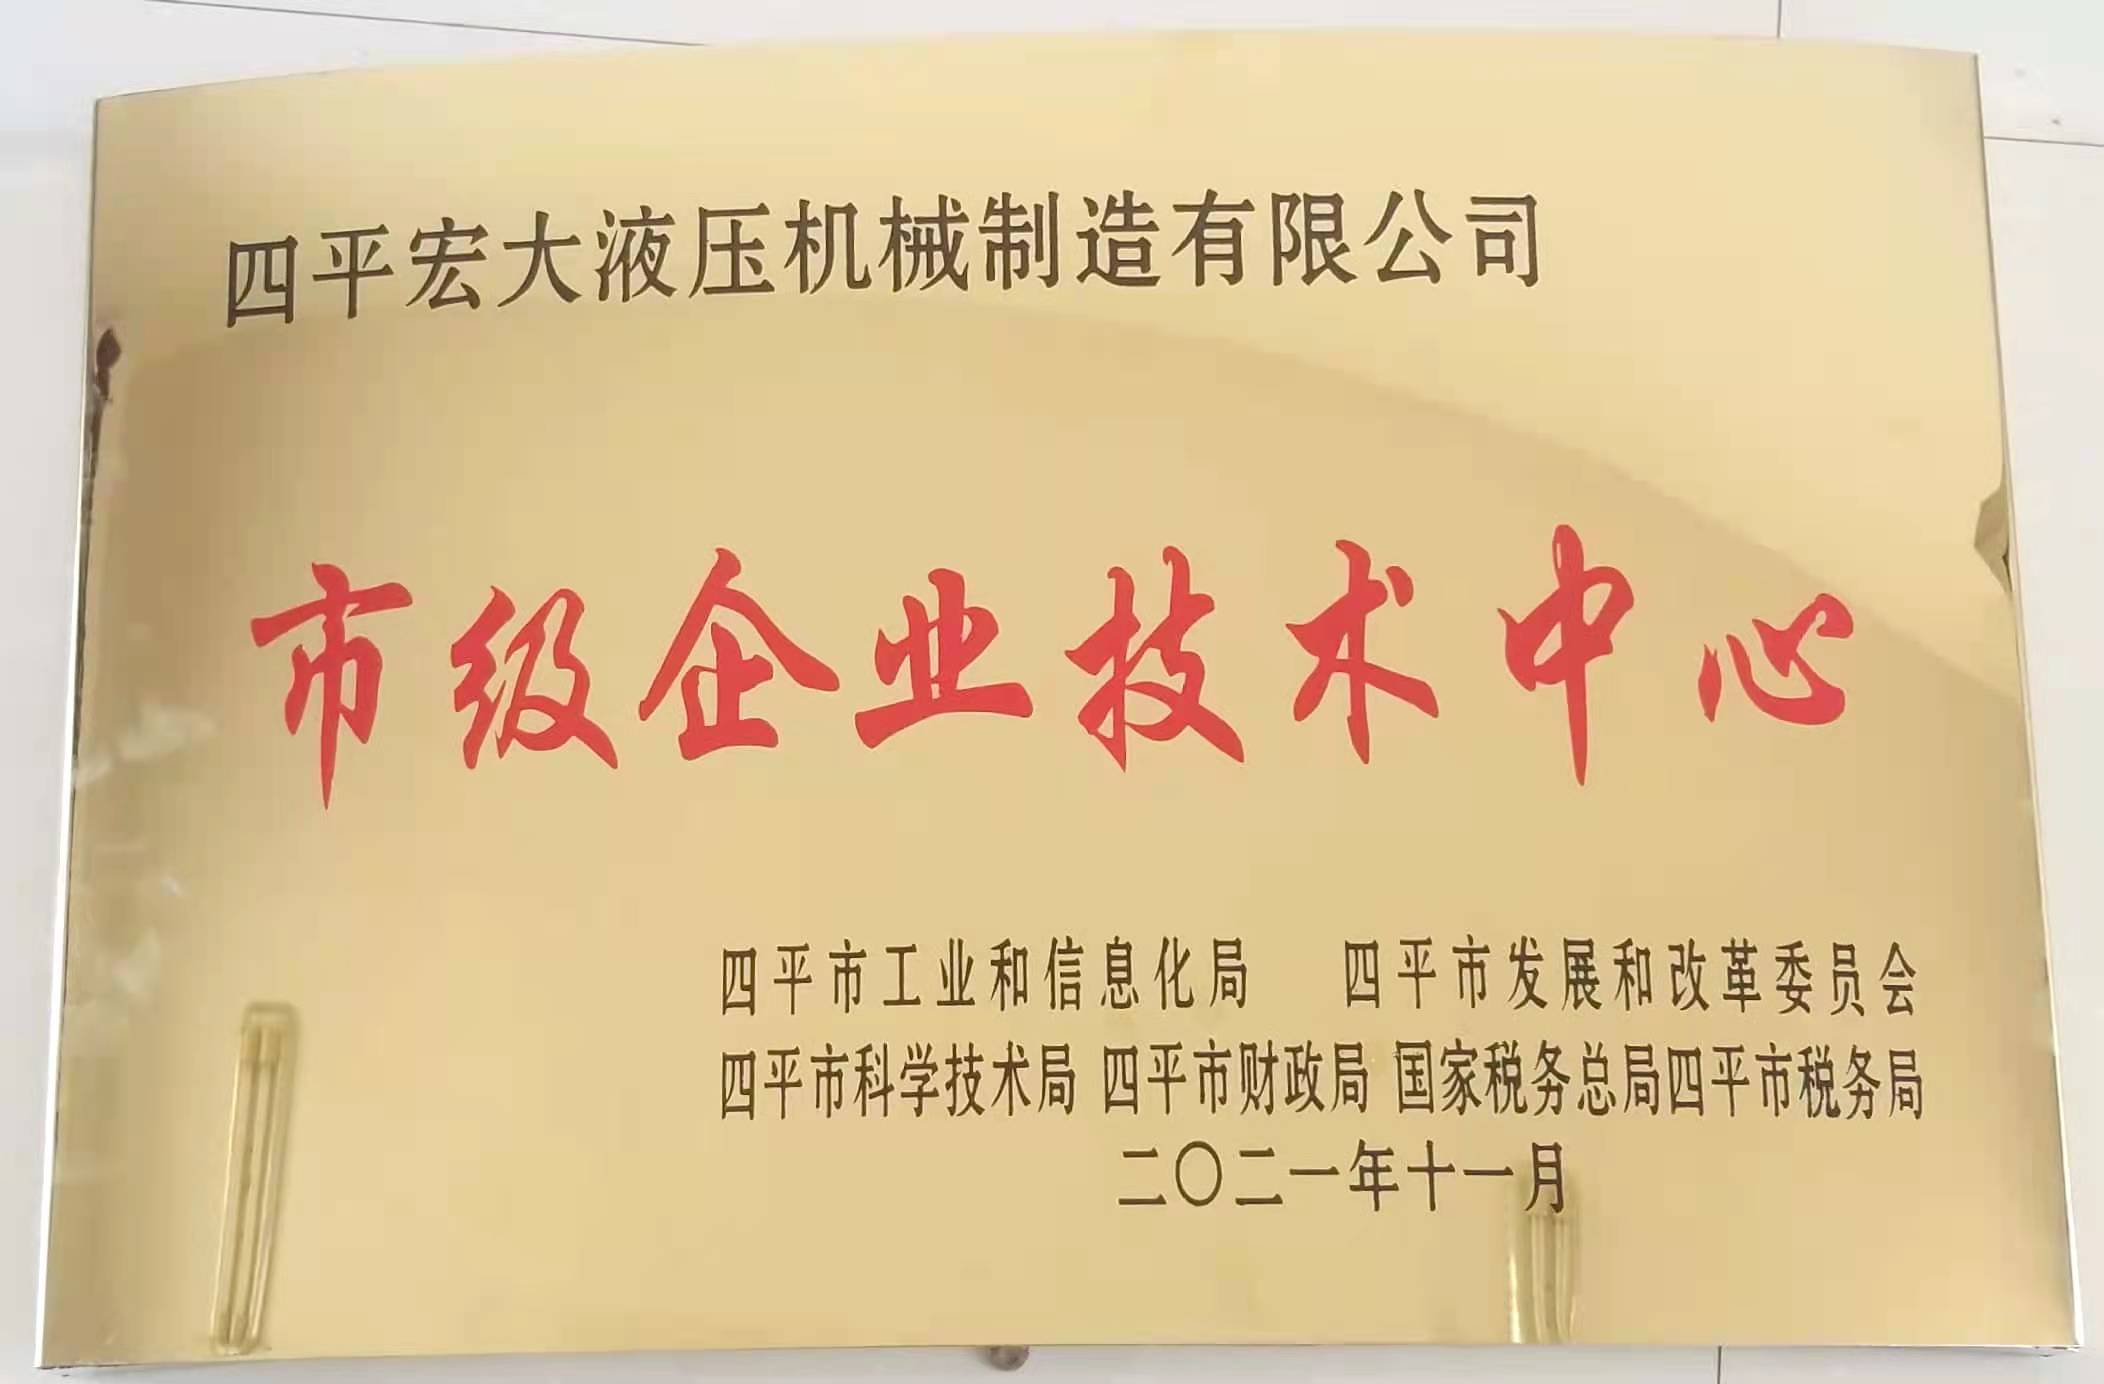 四平宏大液压机械制造有限公司
市级企业技术中心
四平市工业和信息化局 四平市发展和改革委员会
四平市科学技术局 四平市财政局 国家税务总局四平市税务局
二〇二一年十一月